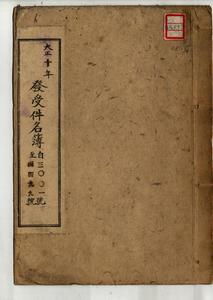 大正十年
發受件名簿
自三〇〇一號
至四四九九號